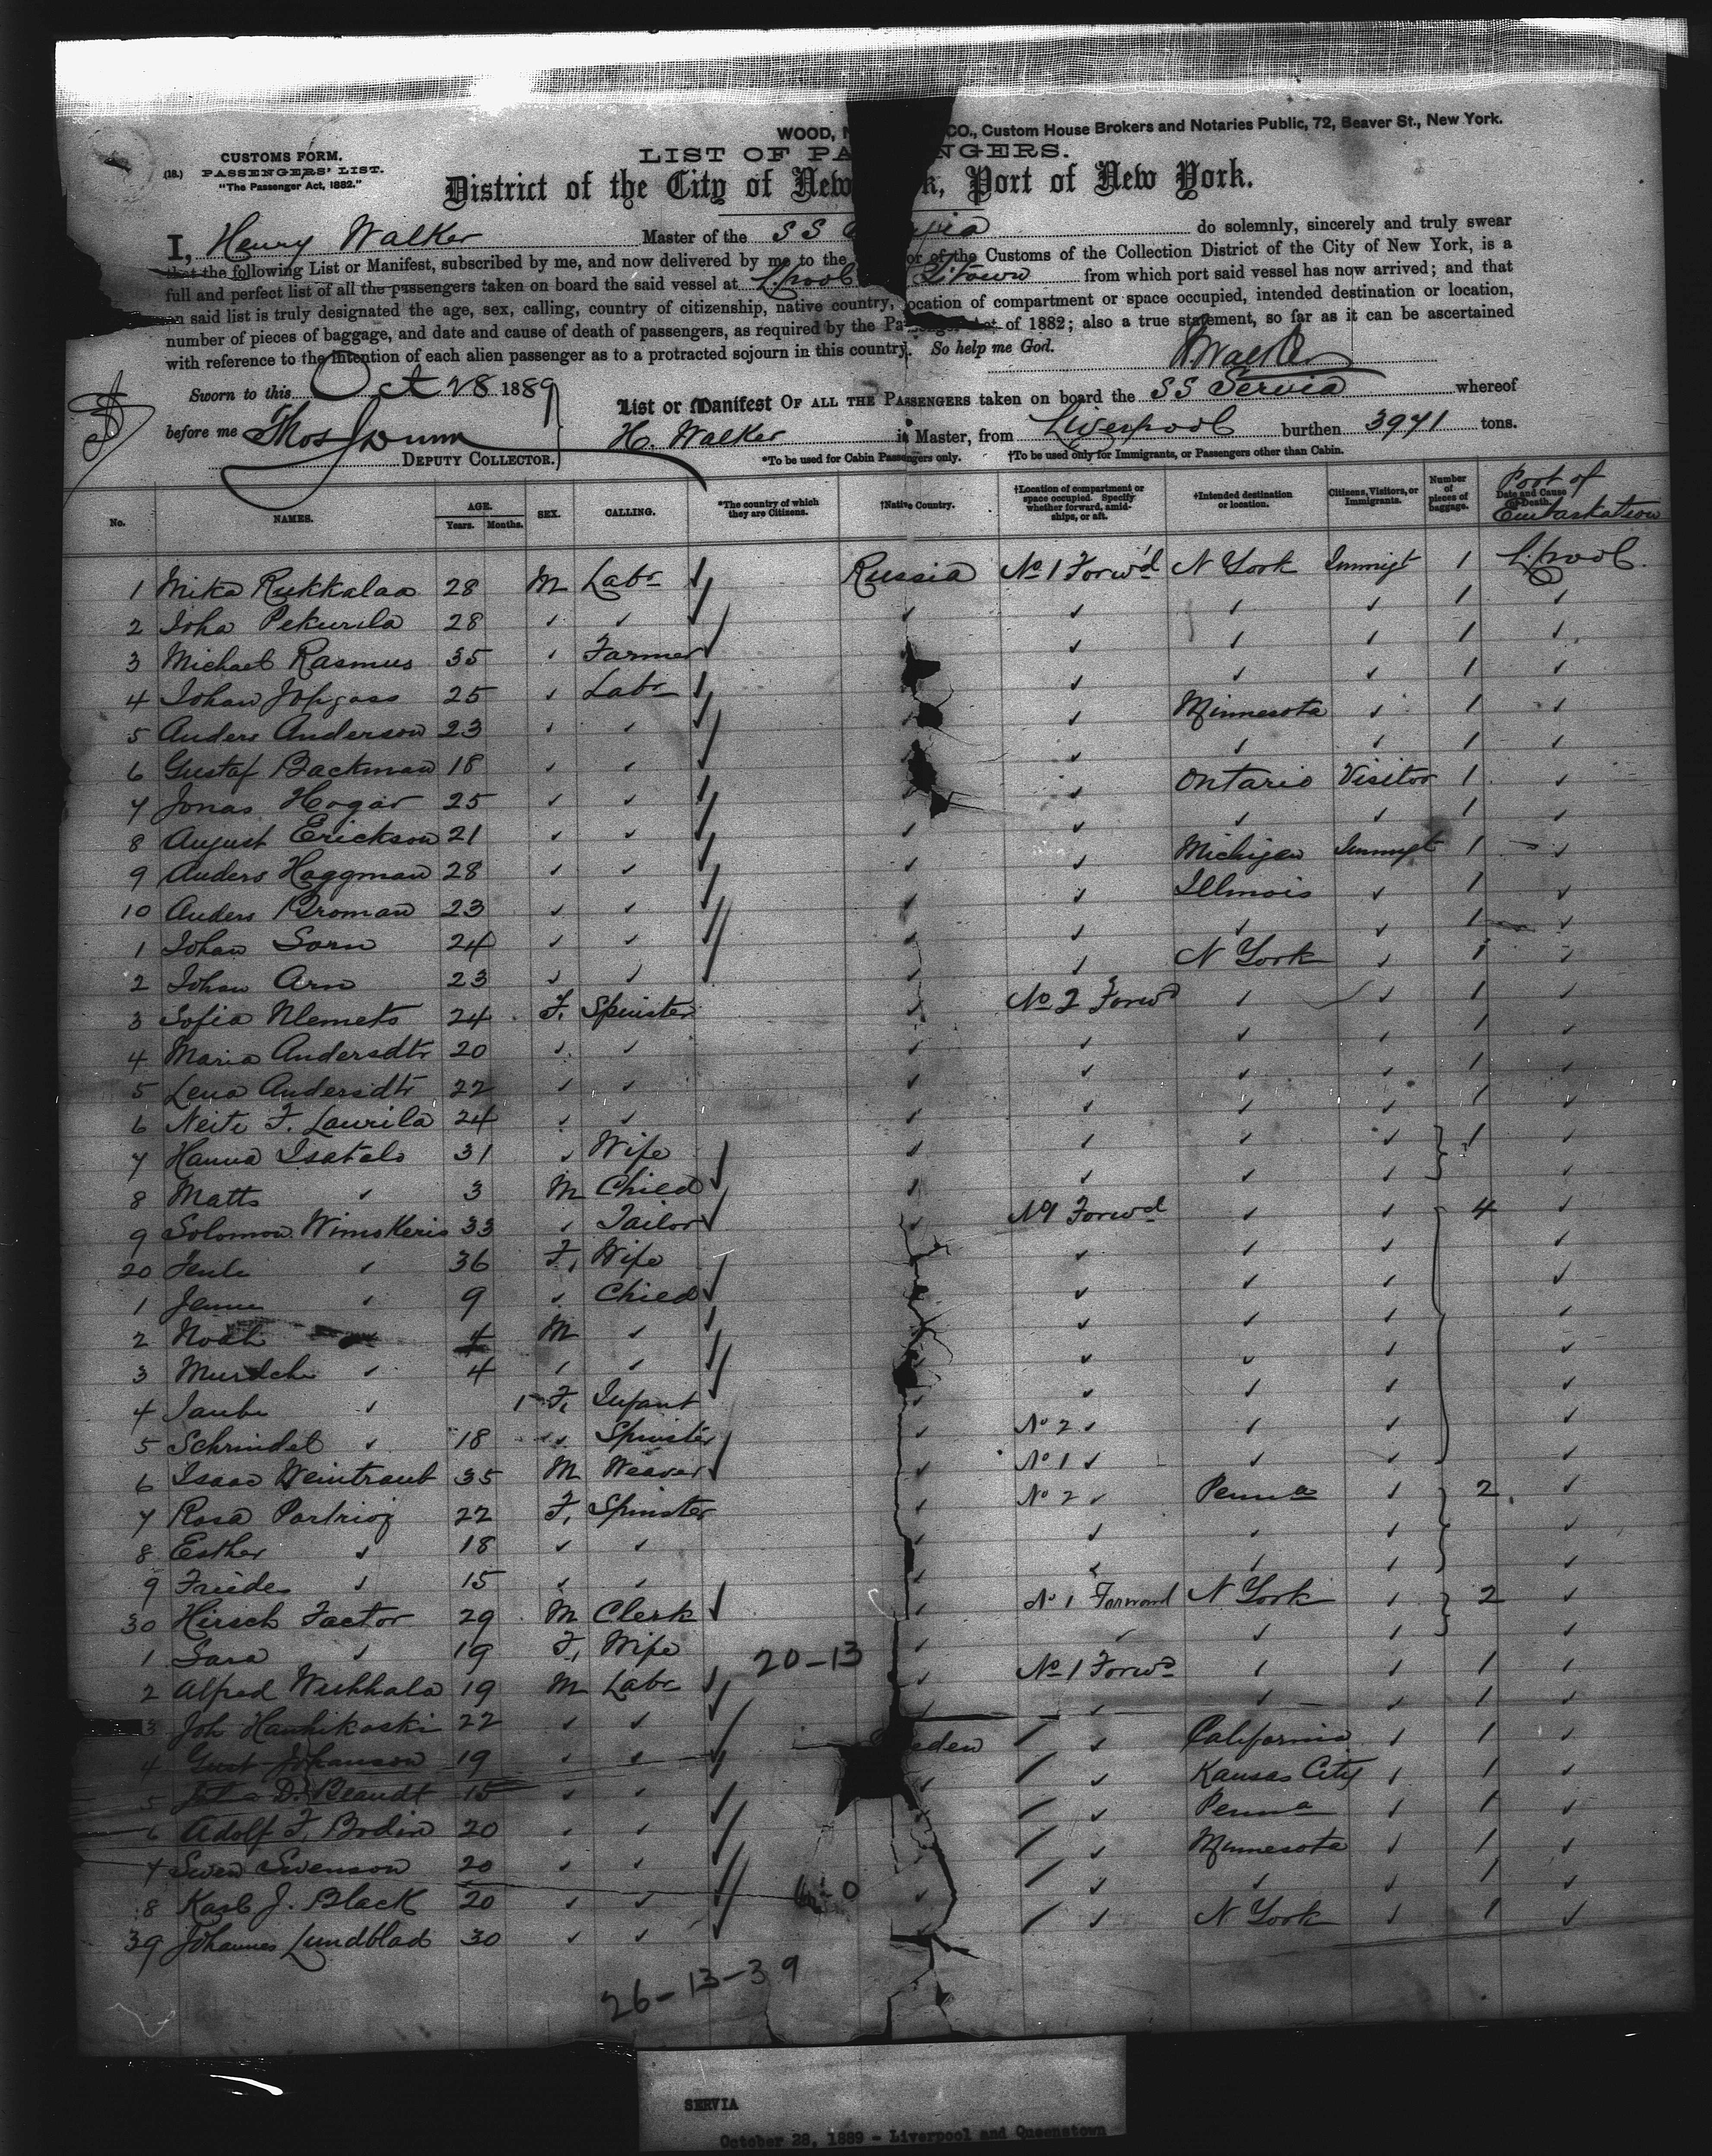 WOOD, N CO., Custom House Brokers and Notaries Public, 72, Beaver St., New York.
CUSTOMS FORM.
(18.) PASSENGERS' LIST.
"The Passenger Act, 1882."
LIST OF PA NGERS.
District of the City of New k, Port of New York.
I, Henry Walker Master of the SS do solemnly, sincerely and truly swear
that the following List or Manifest, subscribed by me, and now delivered by me to the or of the Customs of the Collection District of the City of New York, is a
full and perfect list of all the passengers taken on board the said vessel at L.pool Q.town from which port said vessel has now arrived; and that
on said list is truly designated the age, sex, calling, country of citizenship, native country, location of compartment or space occupied, intended destination or location,
number of pieces of baggage, and date and cause of death of passengers, as required by the Passenger Act of 1882; also a true statement, so far as it can be ascertained
with reference to the intention of each alien passenger as to a protracted sojourn in this country. So help me God. H. Walker
Sworn to this Oct 28 1889
List or Manifest OF ALL THE PASSENGERS taken on board the SS Servia whereof
before me Thos Dunn
H. Walker is Master, from Liverpool burthen 3971 tons.
DEPUTY COLLECTOR.
*To be used for Cabin Passengers only. †To be used only for Immigrants, or Passengers other than Cabin.
No. NAMES. AGE. Years. Months. SEX. CALLING. *The country of which they are Citizens. †Native Country. †Location of compartment or space occupied. Specify whether forward, amidships, or aft. †Intended destination or location. Citizens, Visitors, or Immigrants. Number of pieces of baggage. Date and Cause of Death. Port of Embarkation
1 Mika Rukkalaa 28 M Labr Russia No 1 Forw'd N York Immigt 1 L.pool
2 Joha Pekurila 28 ✓ ✓ ✓ ✓ ✓ ✓ 1 ✓
3 Michael Rasmus 35 ✓ Farmer ✓ ✓ ✓ 1 ✓
4 Johan 25 ✓ Labr ✓ ✓ ✓ 1 ✓
5 Anders Anderson 23 ✓ ✓ ✓ Minnesota ✓ 1 ✓
6 Gustaf Backman 18 ✓ ✓ ✓ ✓ ✓ 1 ✓
7 Jonas Hogar 25 ✓ ✓ ✓ Ontario Visitor 1 ✓
8 August Erickson 21 ✓ ✓ ✓ ✓ ✓ ✓ 1 ✓
9 Anders Haggman 28 ✓ ✓ ✓ ✓ Michigan Immigt 1 ✓
10 Anders Broman 23 ✓ ✓ ✓ ✓ Illinois ✓ 1 ✓
1 Johan Sorn 24 ✓ ✓ ✓ ✓ ✓ ✓ 1 ✓
2 Johan Arn 23 ✓ ✓ ✓ ✓ N York ✓ 1 ✓
3 Sofia Nlemets 24 F. Spinster ✓ No 2 Forwd ✓ ✓ 1 ✓
4 Maria Andersdtr 20 ✓ ✓ ✓ ✓ ✓ ✓ 1 ✓
5 Lena Andersdtr 22 ✓ ✓ ✓ ✓ ✓ ✓ 1 ✓
6 Neite F. Laurila 24 ✓ ✓ ✓ ✓ ✓ ✓ 1 ✓
7 Hanna Isatalo 31 ✓ Wife ✓ ✓ ✓ ✓ 1 ✓
8 Matts ✓ 3 M Child ✓ ✓ ✓ ✓ ✓
9 Solomon Wimskeris 33 ✓ Tailor ✓ No 1 Forwd ✓ ✓ 4 ✓
20 ✓ 36 F. Wife ✓ ✓ ✓ ✓
1 ✓ 9 ✓ Child ✓ ✓ ✓ ✓
2 Noah M ✓ ✓ ✓ ✓ ✓
3 ✓ 4 ✓ ✓ ✓ ✓ ✓ ✓
4 Taube ✓ F. Infant ✓ ✓ ✓ ✓ ✓
5 Schrindel ✓ 18 ✓ Spinster ✓ No 2 ✓ ✓ ✓ ✓
6 Isaac Weintraub 35 M Weaver ✓ No 1 ✓ ✓ ✓ ✓
7 Rosa 22 F. Spinster ✓ No 2 ✓ Penna ✓ 2 ✓
8 Esther ✓ 18 ✓ ✓ ✓ ✓ ✓ ✓ ✓
9 Friede ✓ 15 ✓ ✓ ✓ ✓ ✓ ✓ ✓
30 Hirsch Factor 29 M Clerk ✓ No 1 Forward N York ✓ 2 ✓
1 Sara ✓ 19 F. Wife ✓ ✓ ✓ ✓ ✓
20-13
2 Alfred 19 M Labr ✓ No 1 Forwd ✓ ✓ 1 ✓
3 Joh Hanhikoski 22 ✓ ✓ ✓ ✓ ✓ 1 ✓
4 Gust Johanson 19 ✓ ✓ eden ✓ California ✓ 1 ✓
5 D. Brandt 15 ✓ ✓ ✓ ✓ Kansas City ✓ 1 ✓
6 Adolf F. Bodin 20 ✓ ✓ ✓ Penna ✓ 1 ✓
7 Swen Swenson 20 ✓ ✓ ✓ Minnesota ✓ 1 ✓
8 Karl J. Black 20 ✓ ✓ ✓ ✓ ✓ ✓ 1 ✓
39 Johannes Lundblad 30 ✓ ✓ ✓ N York ✓ 1 ✓
26-13-39
SERVIA
October 28, 1889 - Liverpool and Queenstown